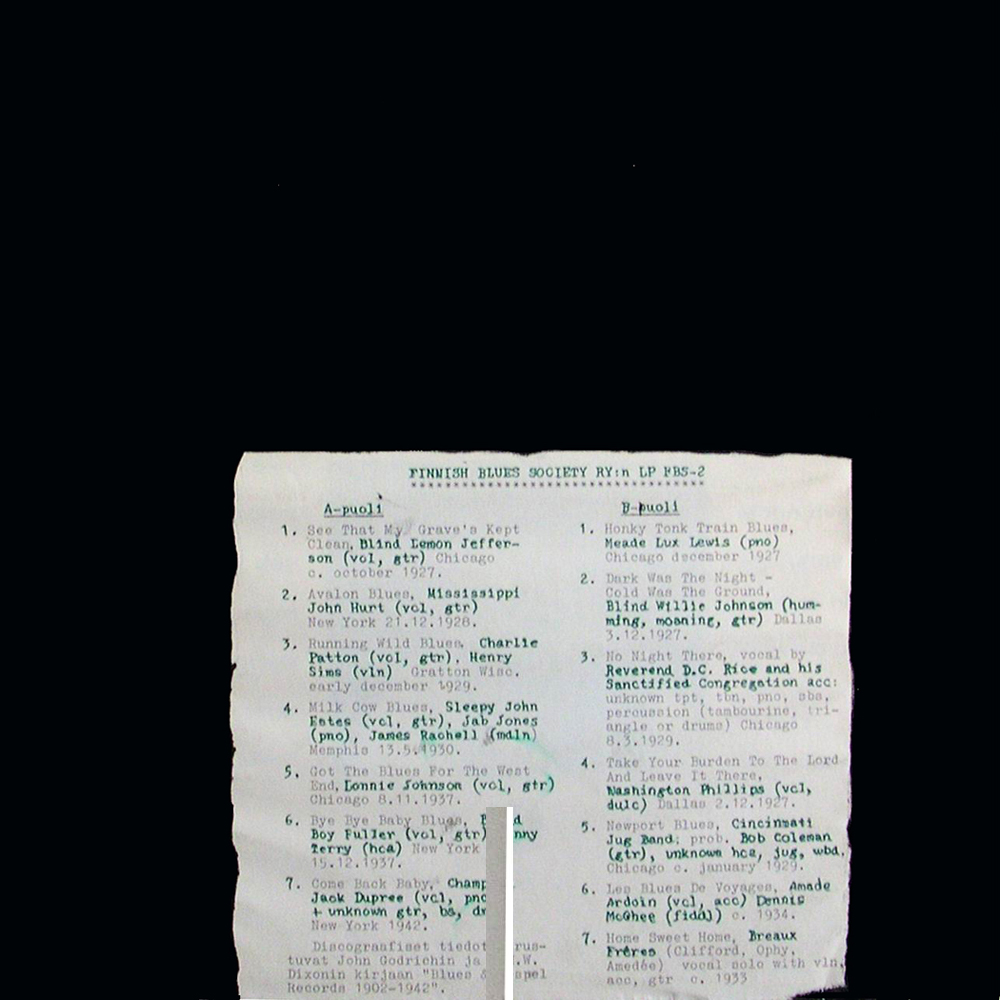 FINNISH BLUES SOCIETY RY:n LP FBS-2
A-puoli
1. See That My Grave's Kept
Clean, Blind Lemon Jeffer-
son (vcl, gtr) Chicago
c. october 1927.
2. Avalon Blues, Mississippi
John Hurt (vcl, gtr)
New York 21.12.1928.
3. Running Wild Blues, Charlie
Patton (vcl, gtr), Henry
Sims (vln) Gratton Wisc.
early december 1929.
4. Milk Cow Blues, Sleepy John
Estes (vcl, gtr), Jab Jones
(pno), James Rachell (mdln)
Memphis 13.5.1930.
5. Got The Blues For The West
End, Lonnie Johnson (vcl, gtr)
Chicago 8.11.1937.
6. Bye Bye Baby Blues,
Boy Fuller (vcl, gtr)
Terry (hca) New York
15.12.1937.
7. Come Back Baby, Champ
Jack Dupree (vcl, pno
+ unknown gtr, bs,
New York 1942.
Discograafiset tiedot
tuvat John Godrichin ja .W.
Dixonin kirjaan "Blues &
Records 1902-1942".
B-puoli
1. Honky Tonk Train Blues,
Meade Lux Lewis (pno)
Chicago december 1927
2. Dark Was The Night -
Cold Was The Ground,
Blind Willie Johnson (hum-
ming, moaning, gtr) Dallas
3.12.1927.
3. No Night There, vocal by
Reverend D.C. Rice and his
Sanctified Congregation acc:
unknown tpt, tbn, pno, sbs,
percussion (tambourine, tri-
angle or drums) Chicago
8.3.1929.
4. Take Your Burden To The Lord
And Leave It There,
Washington Phillips (vcl,
dulc) Dallas 2.12.1927.
5. Newport Blues, Cincinnati
Jug Band; prob. Bob Coleman
(gtr), unknown hca, jug, wbd,
Chicago c. january 1929.
6. Les Blues De Voyages, Amade
Ardoin (vcl, acc) Dennis
McGhee (fidd) c. 1934.
7. Home Sweet Home, Breaux
Fréres (Clifford, Ophy,
Amedée) vocal solo with vln,
acc, gtr c. 1933